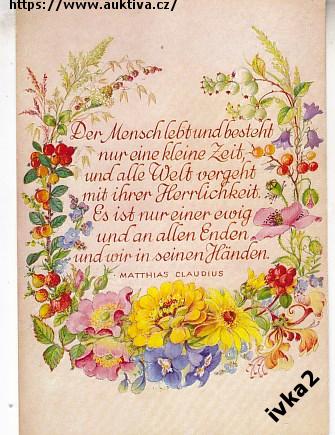 https://www.auktiva.cz/
Der Mensch lebt und besteht
nur eine kleine Zeit,
und alle Welt vergeht
mit ihrer Herrlichkeit.
Es ist nur einer ewig
und an allen Enden,
und wir in seinen Händen.
MATTHIAS CLAUDIUS
ivka2